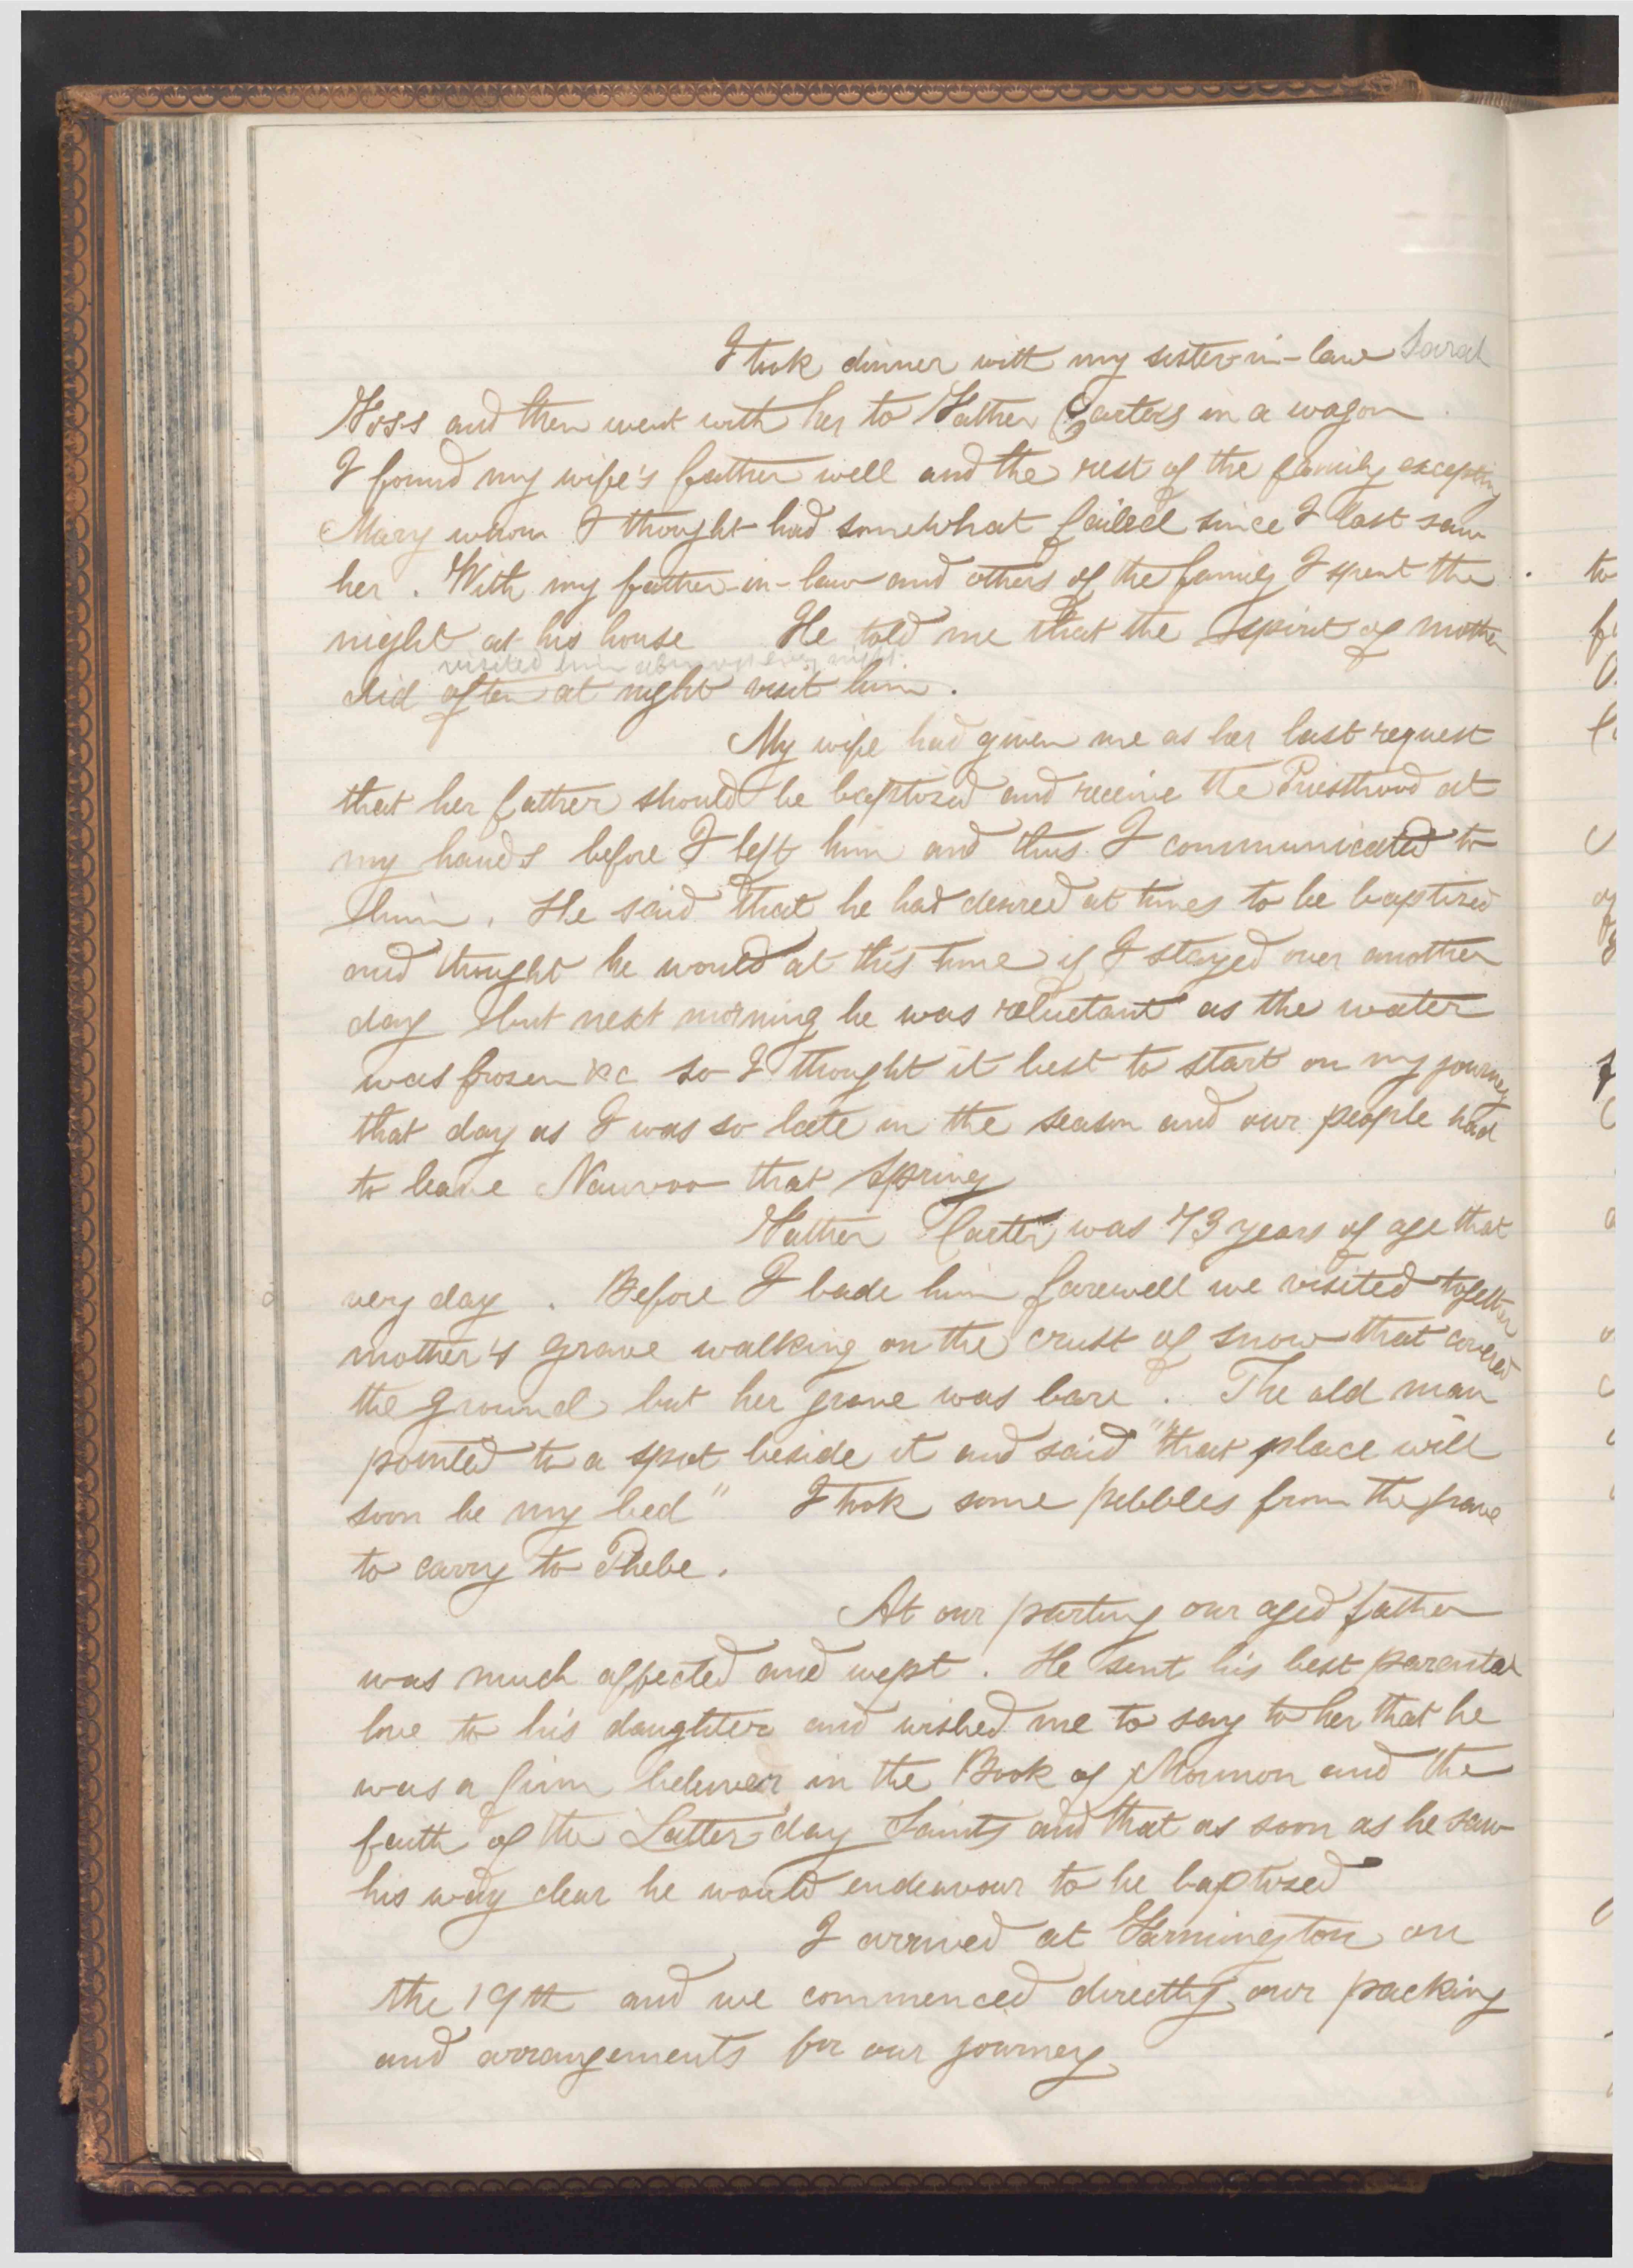 I took dinner with my sister-in-law Sarah
Foss and then went with her to Father Carters in a wagon
I found my wife's father well and the rest of the family excepting
Mary whom I thought had somewhat failed since I last saw
her. With my father-in-law and others of the family I spent the
night at his house He told me that the spirit of mother
visited him almost every night.
did often at night visit him.
My wife had given me as her last request
that her father should be baptized and receive the Priesthood at
my hands before I left him and this I communicated to
him. He said that he had desired at times to be baptized
and thought he would at this time if I stayed over another
day but next morning he was reluctant as the water
was frozen &c so I thought it best to start on my journey
that day as I was so late in the season and our people had
to leave Nauvoo that spring
Father Carter was 73 years of age that
very day. Before I bade him farewell we visited together
mother's grave walking on the crust of snow that covered
the ground but her grave was bare. The old man
pointed to a spot beside it and said "that place will
soon be my bed" I took some pebbles from the grave
to carry to Phebe.
At our parting our aged father
was much affected and wept. He sent his best parental
love to his daughter and wished me to say to her that he
was a firm believer in the Book of Mormon and the
faith of the Latter-day Saints and that as soon as he saw
his way clear he would endeavour to be baptized
I arrived at Farmington on
the 19th and we commenced directly our packing
and arrangements for our journey